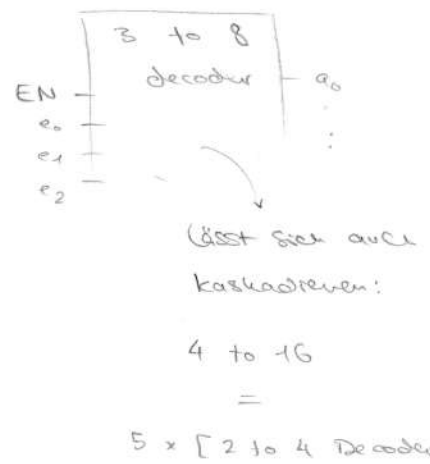 3 to 8
decoder
EN
e0
e1
e2
a0
lässt sich auch
kaskadieren:
4 to 16
=
5 x [ 2 to 4 Decode